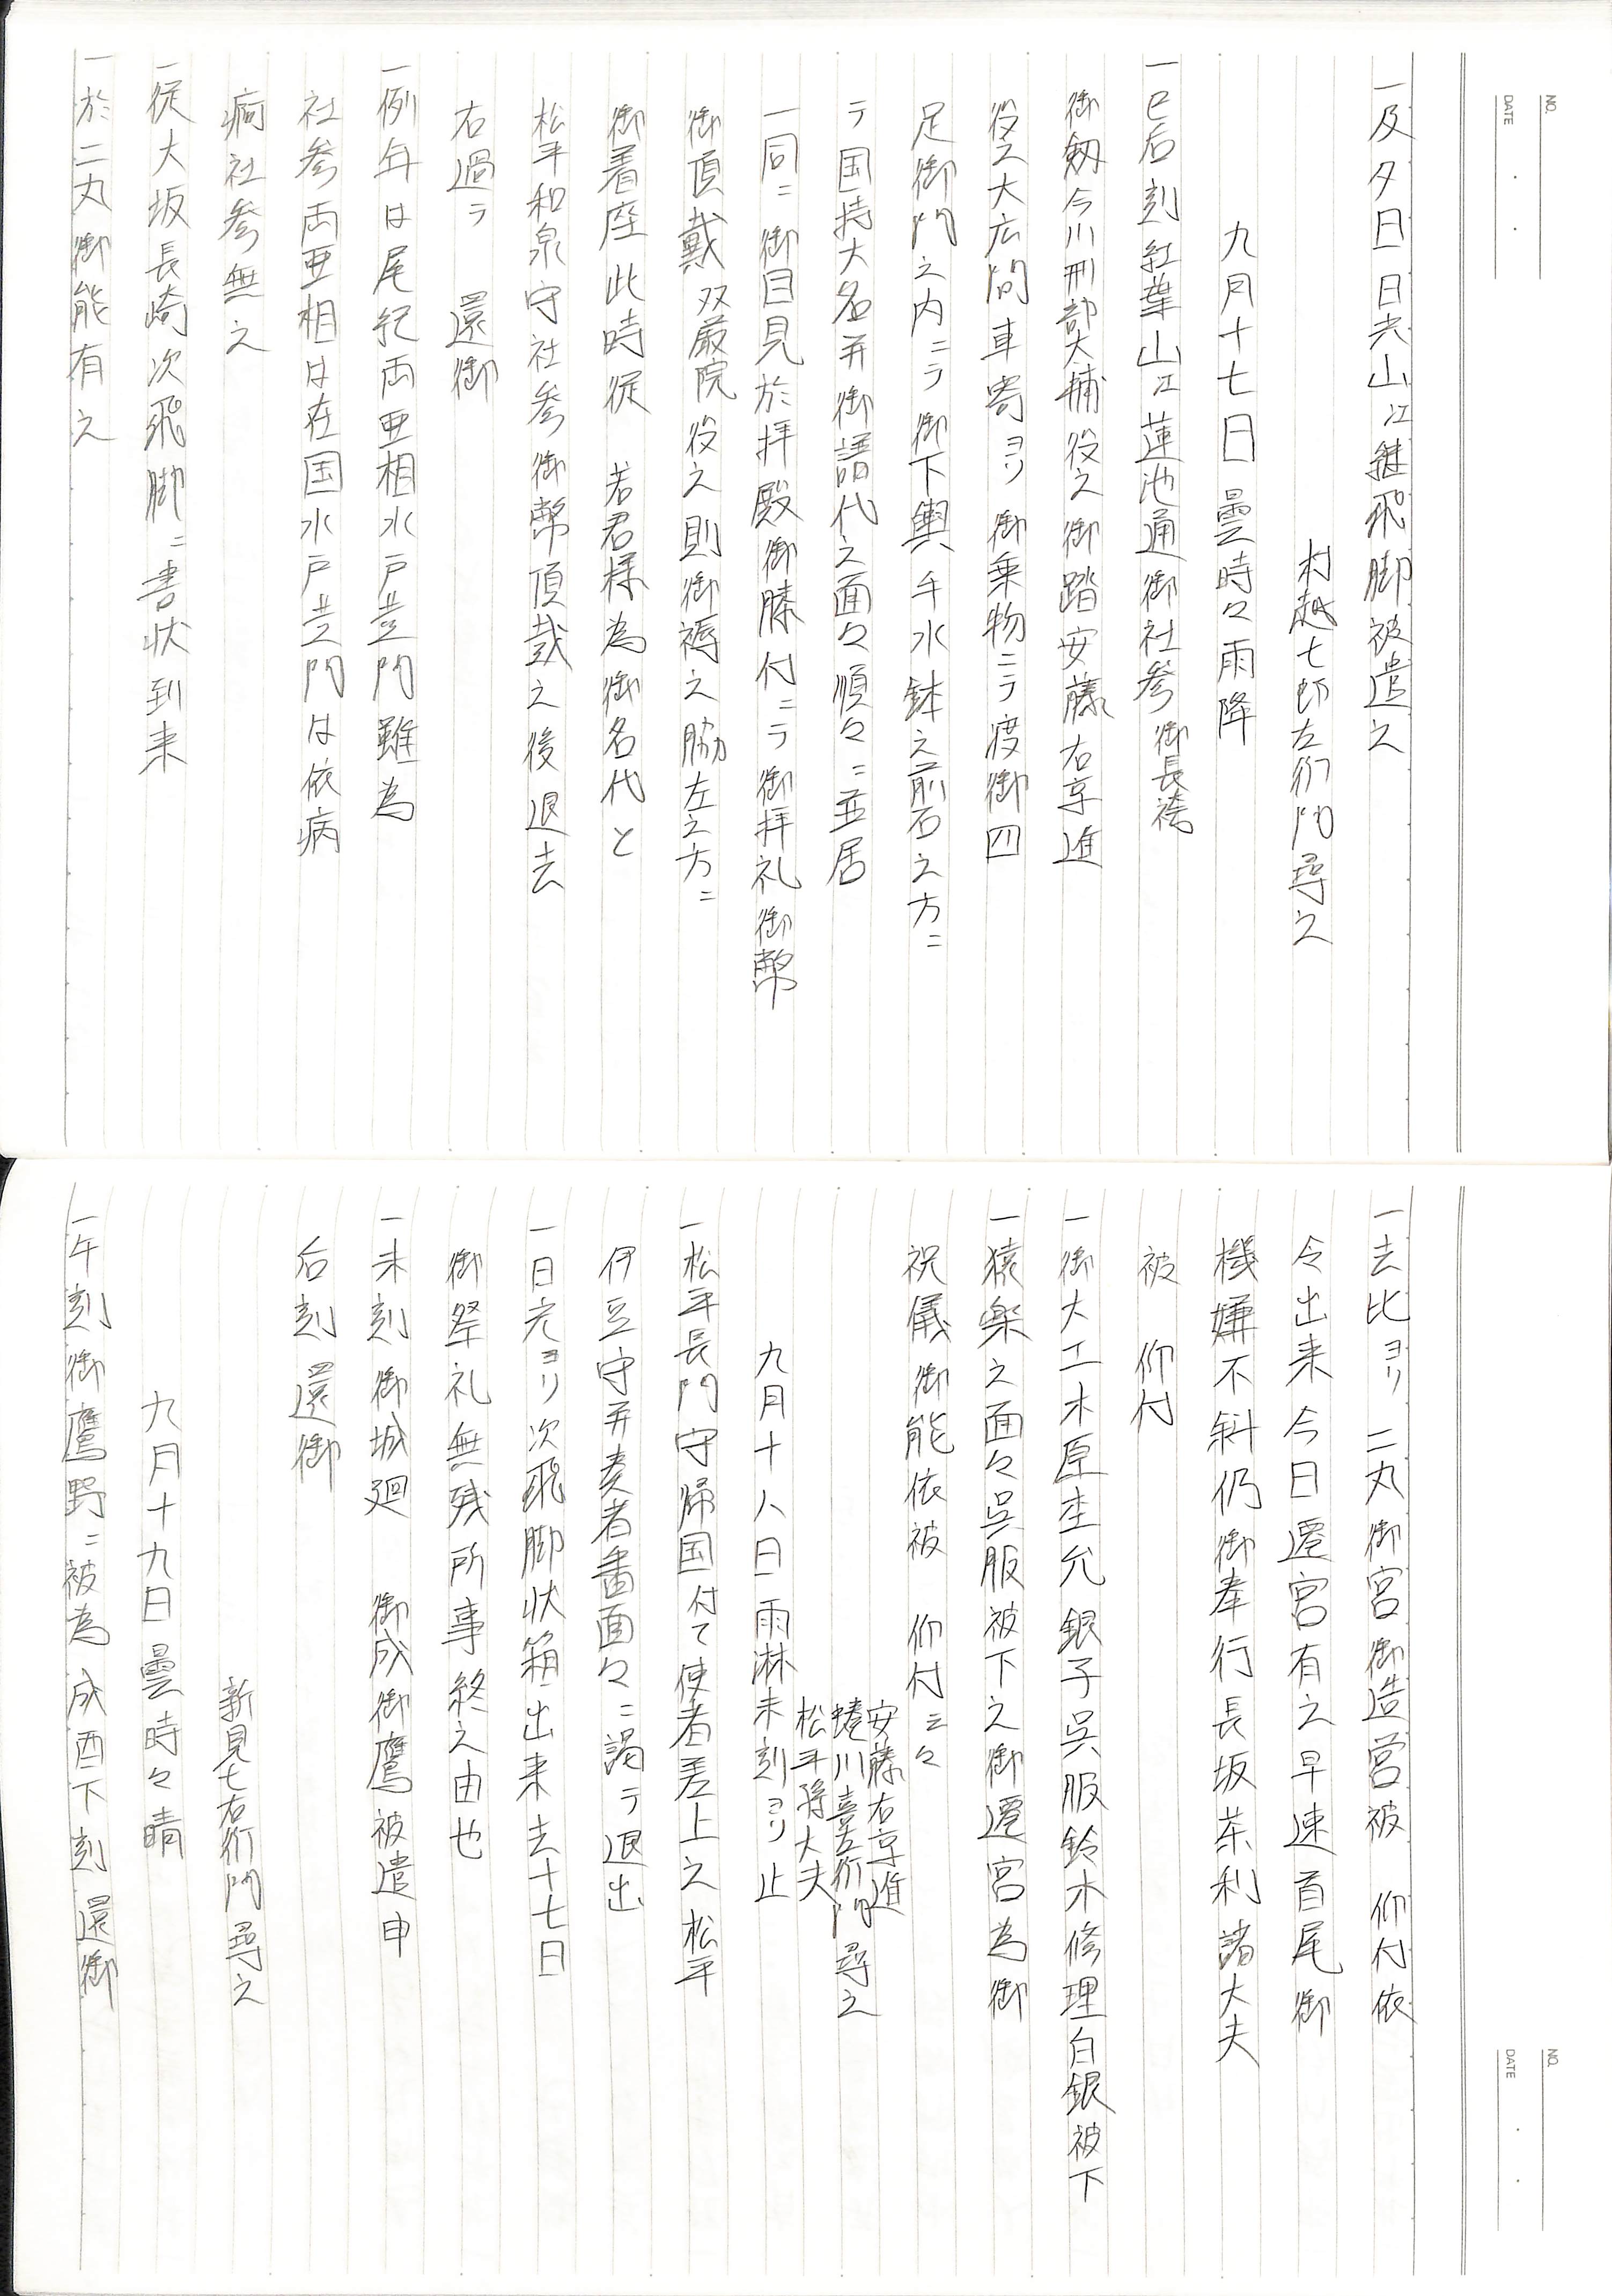 NO.
DATE
一及夕日日光山江継飛脚被遣之
村越七郎左衛門尋之
九月十七日曇時々雨降
一巳后刻紅葉山江蓮池通御社参御長袴
御劔今川刑部大輔役之御踏安藤右京進
役之大広間車寄ヨリ御乗物ニテ渡御四
足御門之内ニテ御下輿手水鉢之前石之方ニ
テ国持大名并御譜代之面々順々ニ並居
一同ニ御目見於拝殿御膝付ニテ御拝礼御幣
御頂戴双厳院役之則御褥之脇左之方ニ
御着座此時従 若君様為御名代と
松平和泉守社参御幣頂戴之後退去
右過テ 還御
一例年は尾紀両亜相水戸黄門雖為
社参両亜相は在国水戸黄門は依病
痾社参無之
一従大坂長崎次飛脚ニ書状到来
一於二丸御能有之
NO.
DATE
一去比ヨリ二丸御宮御造営被 仰付依
令出来今日遷宮有之早速首尾御
機嫌不斜仍御奉行長坂茶利諸大夫
被 仰付
一御大工木原杢允銀子呉服鈴木修理白銀被下
一猿楽之面々呉服被下之御遷宮為御
祝儀御能依被 仰付云々
安藤右京進
蜷川喜左衛門尋之
松平将大夫
九月十八日雨淋未刻ヨリ止
一松平長門守帰国付て使者差上之松平
伊豆守并奏者番面々ニ謁テ退出
一日光ヨリ次飛脚状箱出来去十七日
御祭礼無残所事終之由也
一未刻御城廻 御成御鷹被遣申
后刻還御
新見七右衛門尋之
九月十九日曇時々晴
一午刻御鷹野ニ被為成酉下刻還御